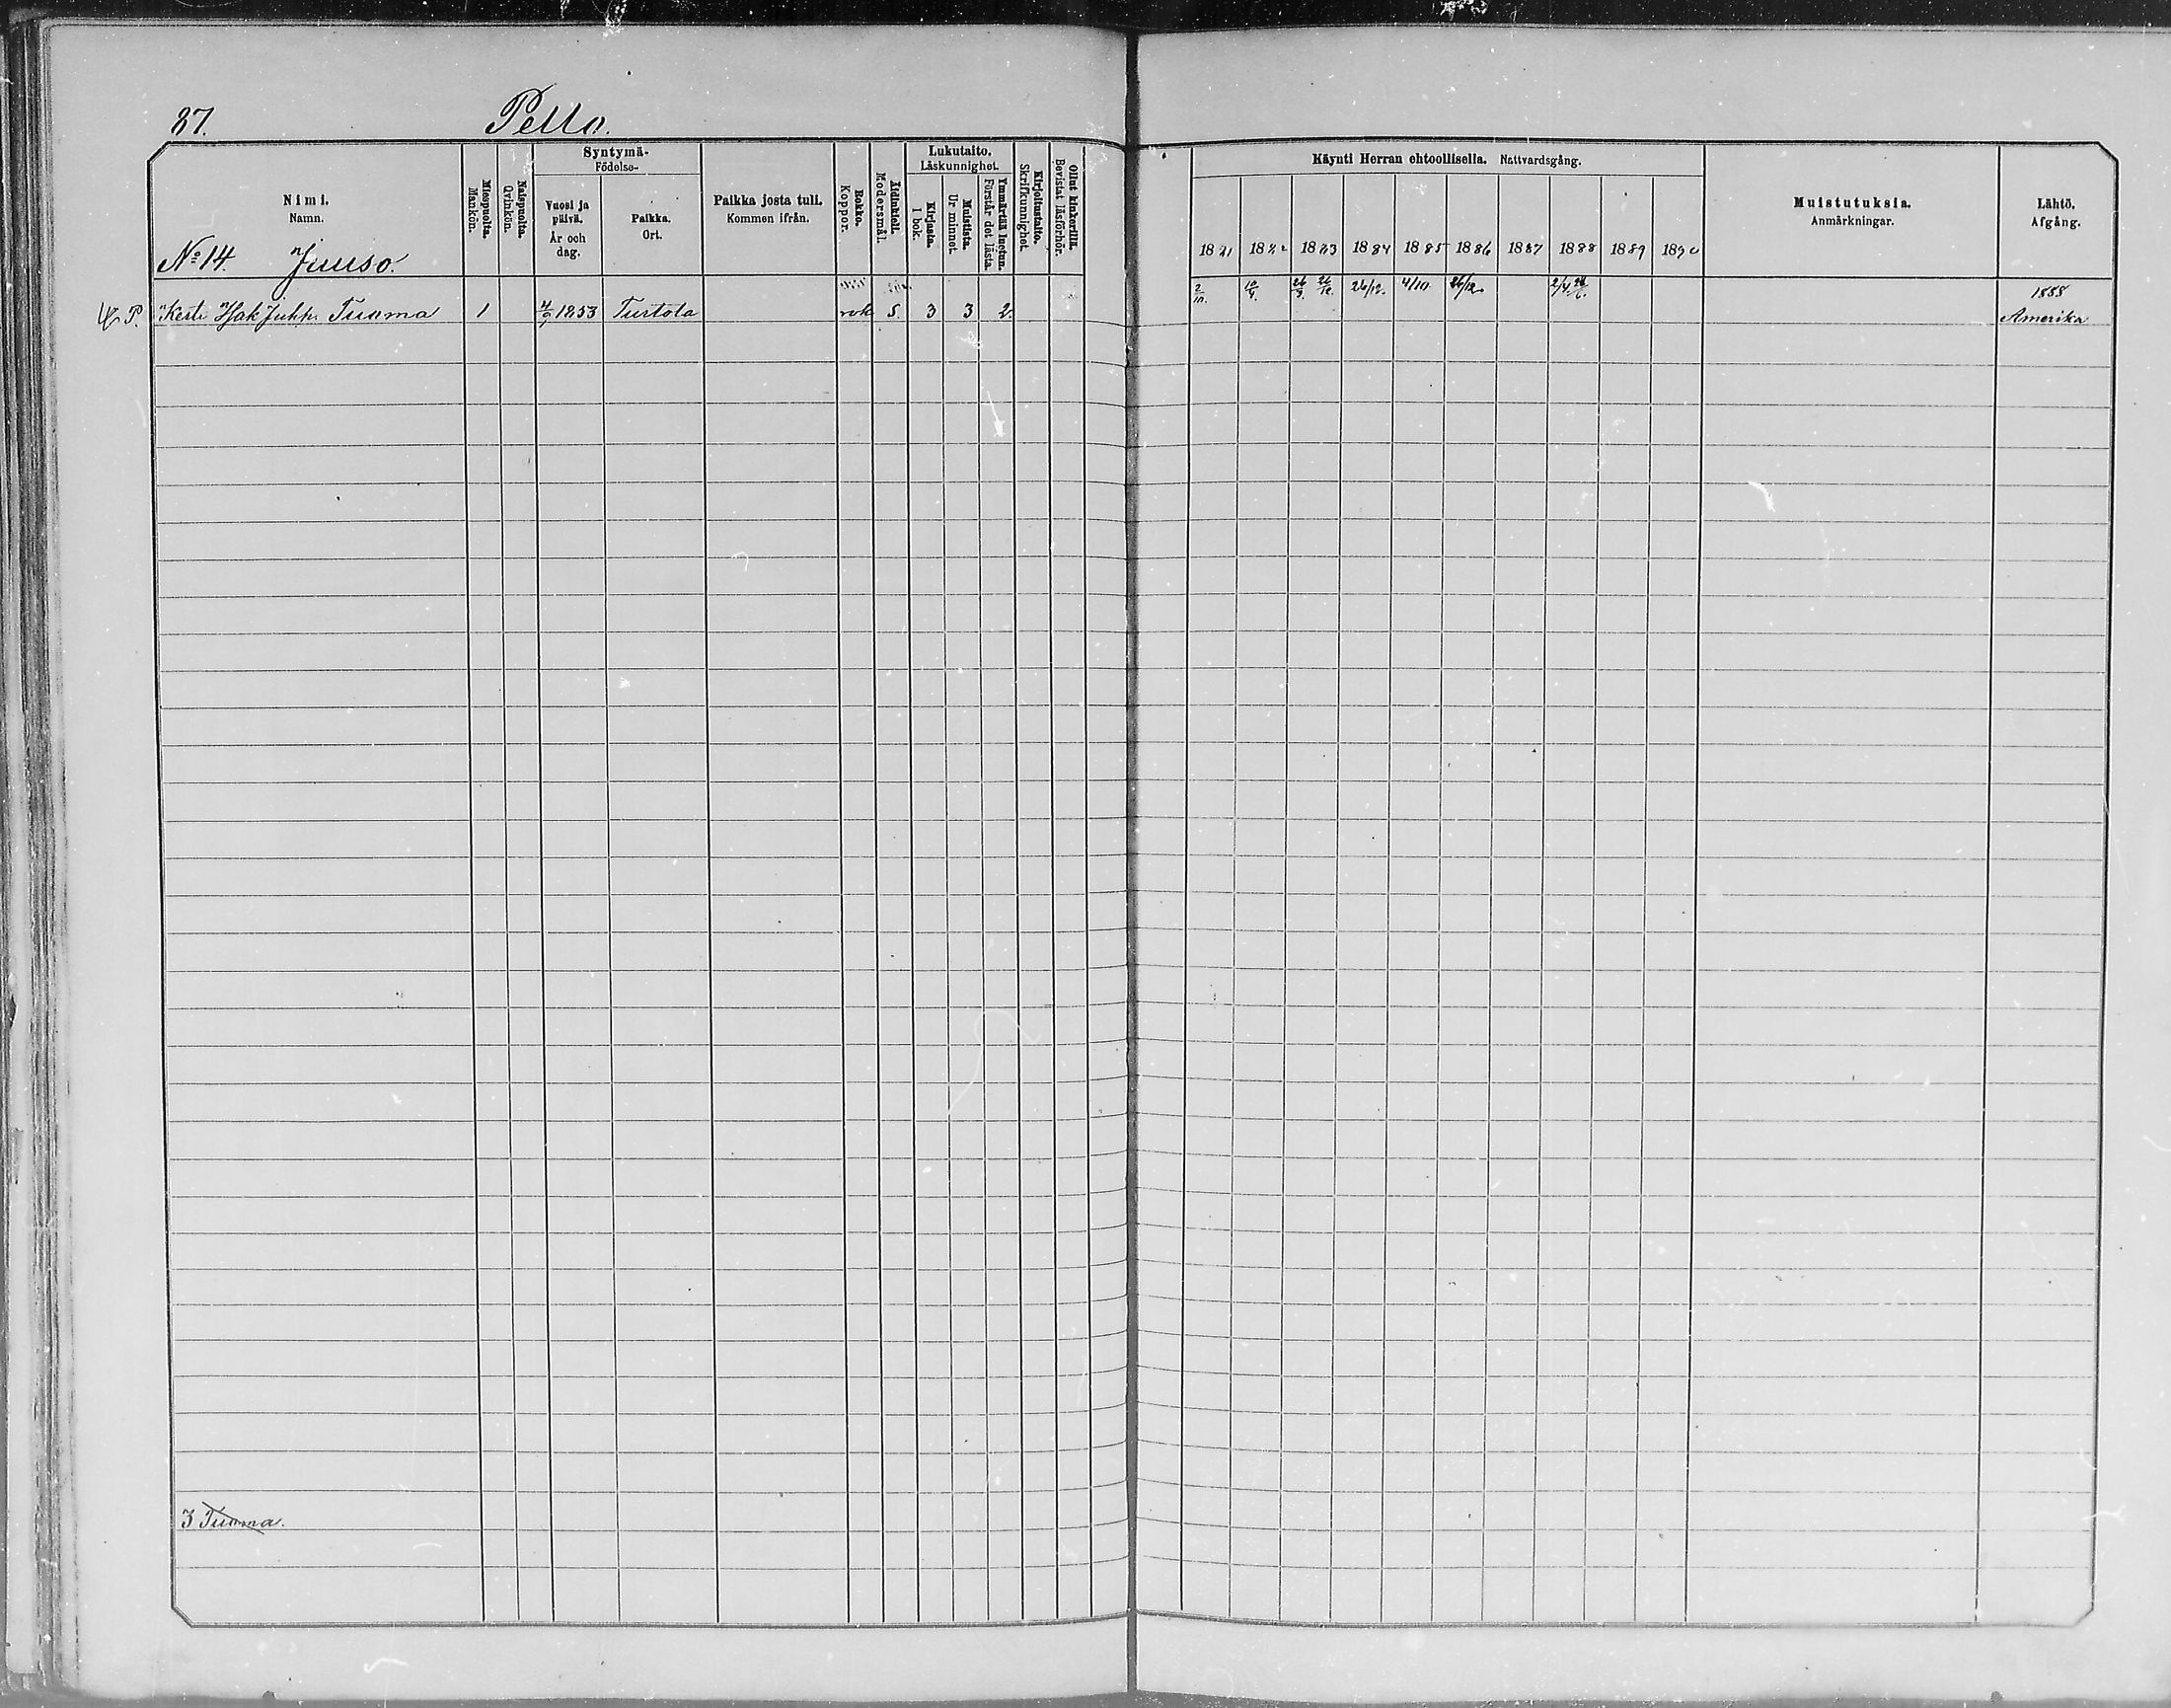 87. Pello.
Nimi. Namn.
Miespuolta. Mankön.
Naispuolta. Qvinkön.
Syntymä- Födelse-
Vuosi ja päivä. År och dag.
Paikka. Ort.
Paikka josta tuli. Kommen ifrån.
Rokko. Koppor.
Äidinkieli. Modersmål.
Lukutaito. Läskunnighet.
Kirjasta. I bok.
Muistista. Ur minnet.
Ymmärtää luetun. Förstår det lästa.
Kirjoitustaito. Skrifkunnighet.
Ollut kinkerillä. Bevistat läsförhör.
Käynti Herran ehtoollisella. Nattvardsgång.
1881 1882 1883 1884 1885 1886 1887 1888 1889 1890
Muistutuksia. Anmärkningar.
Lähtö. Afgång.
No 14. Juuso.
P. Kesti Isak Juhh. Tuoma 1 4/9 1853 Turtola rok S. 3 3 2. 2/10. 26/9. 26/12. 26/12. 4/10 26/12. 1888 Amerika
3 Tuoma.